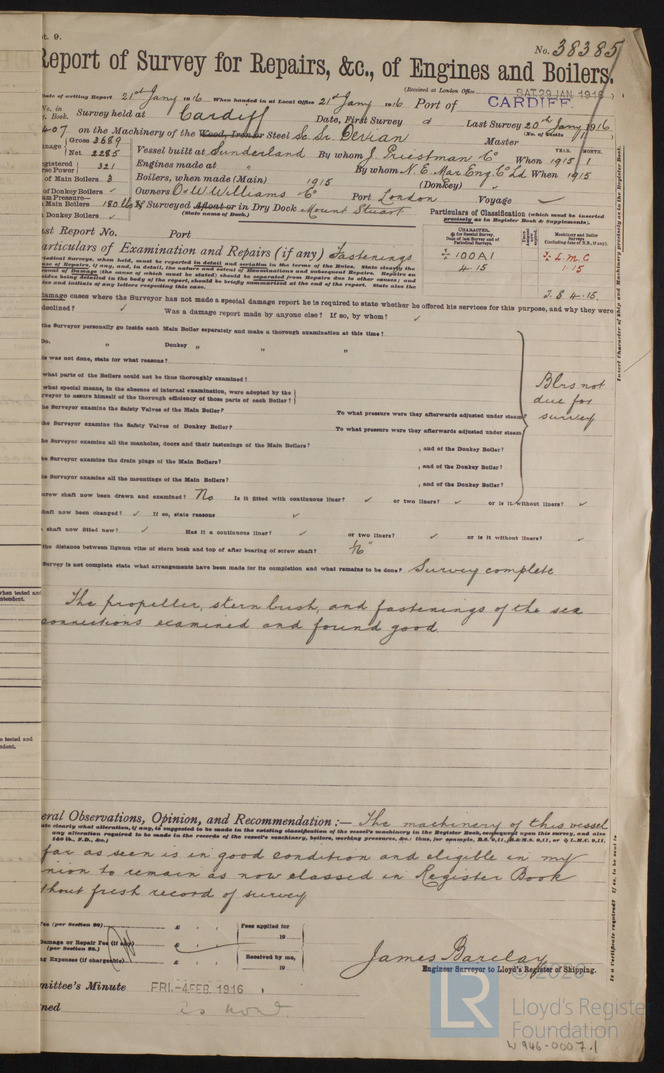 pt. 9.
No. 38385
Report of Survey for Repairs, &c., of Engines and Boilers.
(Received at London Office SAT. 29 JAN 1916)
Date of writing Report 21st Jany 1916 When handed in at Local Office 21st Jany 1916 Port of CARDIFF
No. in Reg. Book. Survey held at Cardiff Date, First Survey d Last Survey 20th Jany 1916
407 on the Machinery of the Wood, Iron or Steel Sc Sr. Dervan (No. of Visits 1) Master
Gross 3689
Net 2285 Vessel built at Sunderland By whom J. Priestman & Co When 1915 1
YEAR. MONTH.
Registered Horse Power 321 Engines made at " By whom N. E. Mar. Eng. Co Ld When 1915
of Main Boilers 3 Boilers, when made (Main) 1915 (Donkey)
of Donkey Boilers Owners O & W Williams & Co Port London Voyage
Steam Pressure—
Main Boilers 180 lbs If Surveyed Afloat or in Dry Dock Mount Stuart
(State name of Dock.)
Donkey Boilers
Particulars of Classification (which must be inserted precisely as in Register Book & Supplements).
Last Report No. Port
Particulars of Examination and Repairs (if any) Fastenings
✠ 100A1
4.15
✠ L.M.C
1.15
T.S 4.15.
Damage cases where the Surveyor has not made a special damage report he is required to state whether he offered his services for this purpose, and why they were
declined? Was a damage report made by anyone else? If so, by whom?
the Surveyor personally go inside each Main Boiler separately and make a thorough examination at this time?
Do. " Donkey " " "
is was not done, state for what reasons?
what parts of the Boilers could not be thus thoroughly examined?
what special means, in the absence of internal examination, were adopted by the
Surveyor to assure himself of the thorough efficiency of those parts of each Boiler?
Blrs not
due for
survey
the Surveyor examine the Safety Valves of the Main Boiler? To what pressure were they afterwards adjusted under steam?
the Surveyor examine the Safety Valves of Donkey Boiler? To what pressure were they afterwards adjusted under steam
the Surveyor examine all the manholes, doors and their fastenings of the Main Boilers? , and of the Donkey Boiler?
the Surveyor examine the drain plugs of the Main Boilers? , and of the Donkey Boiler?
the Surveyor examine all the mountings of the Main Boilers? , and of the Donkey Boiler?
screw shaft now been drawn and examined? No Is it fitted with continuous liner? ✓ or two liners? ✓ or is it without liners? ✓
shaft now been changed? ✓ If so, state reasons ✓
shaft now fitted new? ✓ Has it a continuous liner? ✓ or two liners? ✓ or is it without liners? ✓
the distance between lignum vitæ of stern bush and top of after bearing of screw shaft? 1/16"
Survey is not complete state what arrangements have been made for its completion and what remains to be done? Survey complete
The propeller, stern bush, and fastenings of the sea
connections examined and found good.
General Observations, Opinion, and Recommendation:— The machinery of this vessel
far as seen is in good condition and eligible in my
opinion to remain as now classed in Register Book
without fresh record of survey
Fee (per Section 29) £ Fees applied for
19
Damage or Repair Fee (if any) £
(per Section 28.)
Received by me,
19
Expenses (if chargeable) £
James Barclay
Engineer Surveyor to Lloyd's Register of Shipping.
Committee's Minute FRI. 4 FEB. 1916
Assigned as now.
© 2020
LR
Lloyd's Register
Foundation
W946-0007.1
Insert Character of Ship and Machinery precisely as in the Register Book.
Is a Certificate required? If so, to be sent to